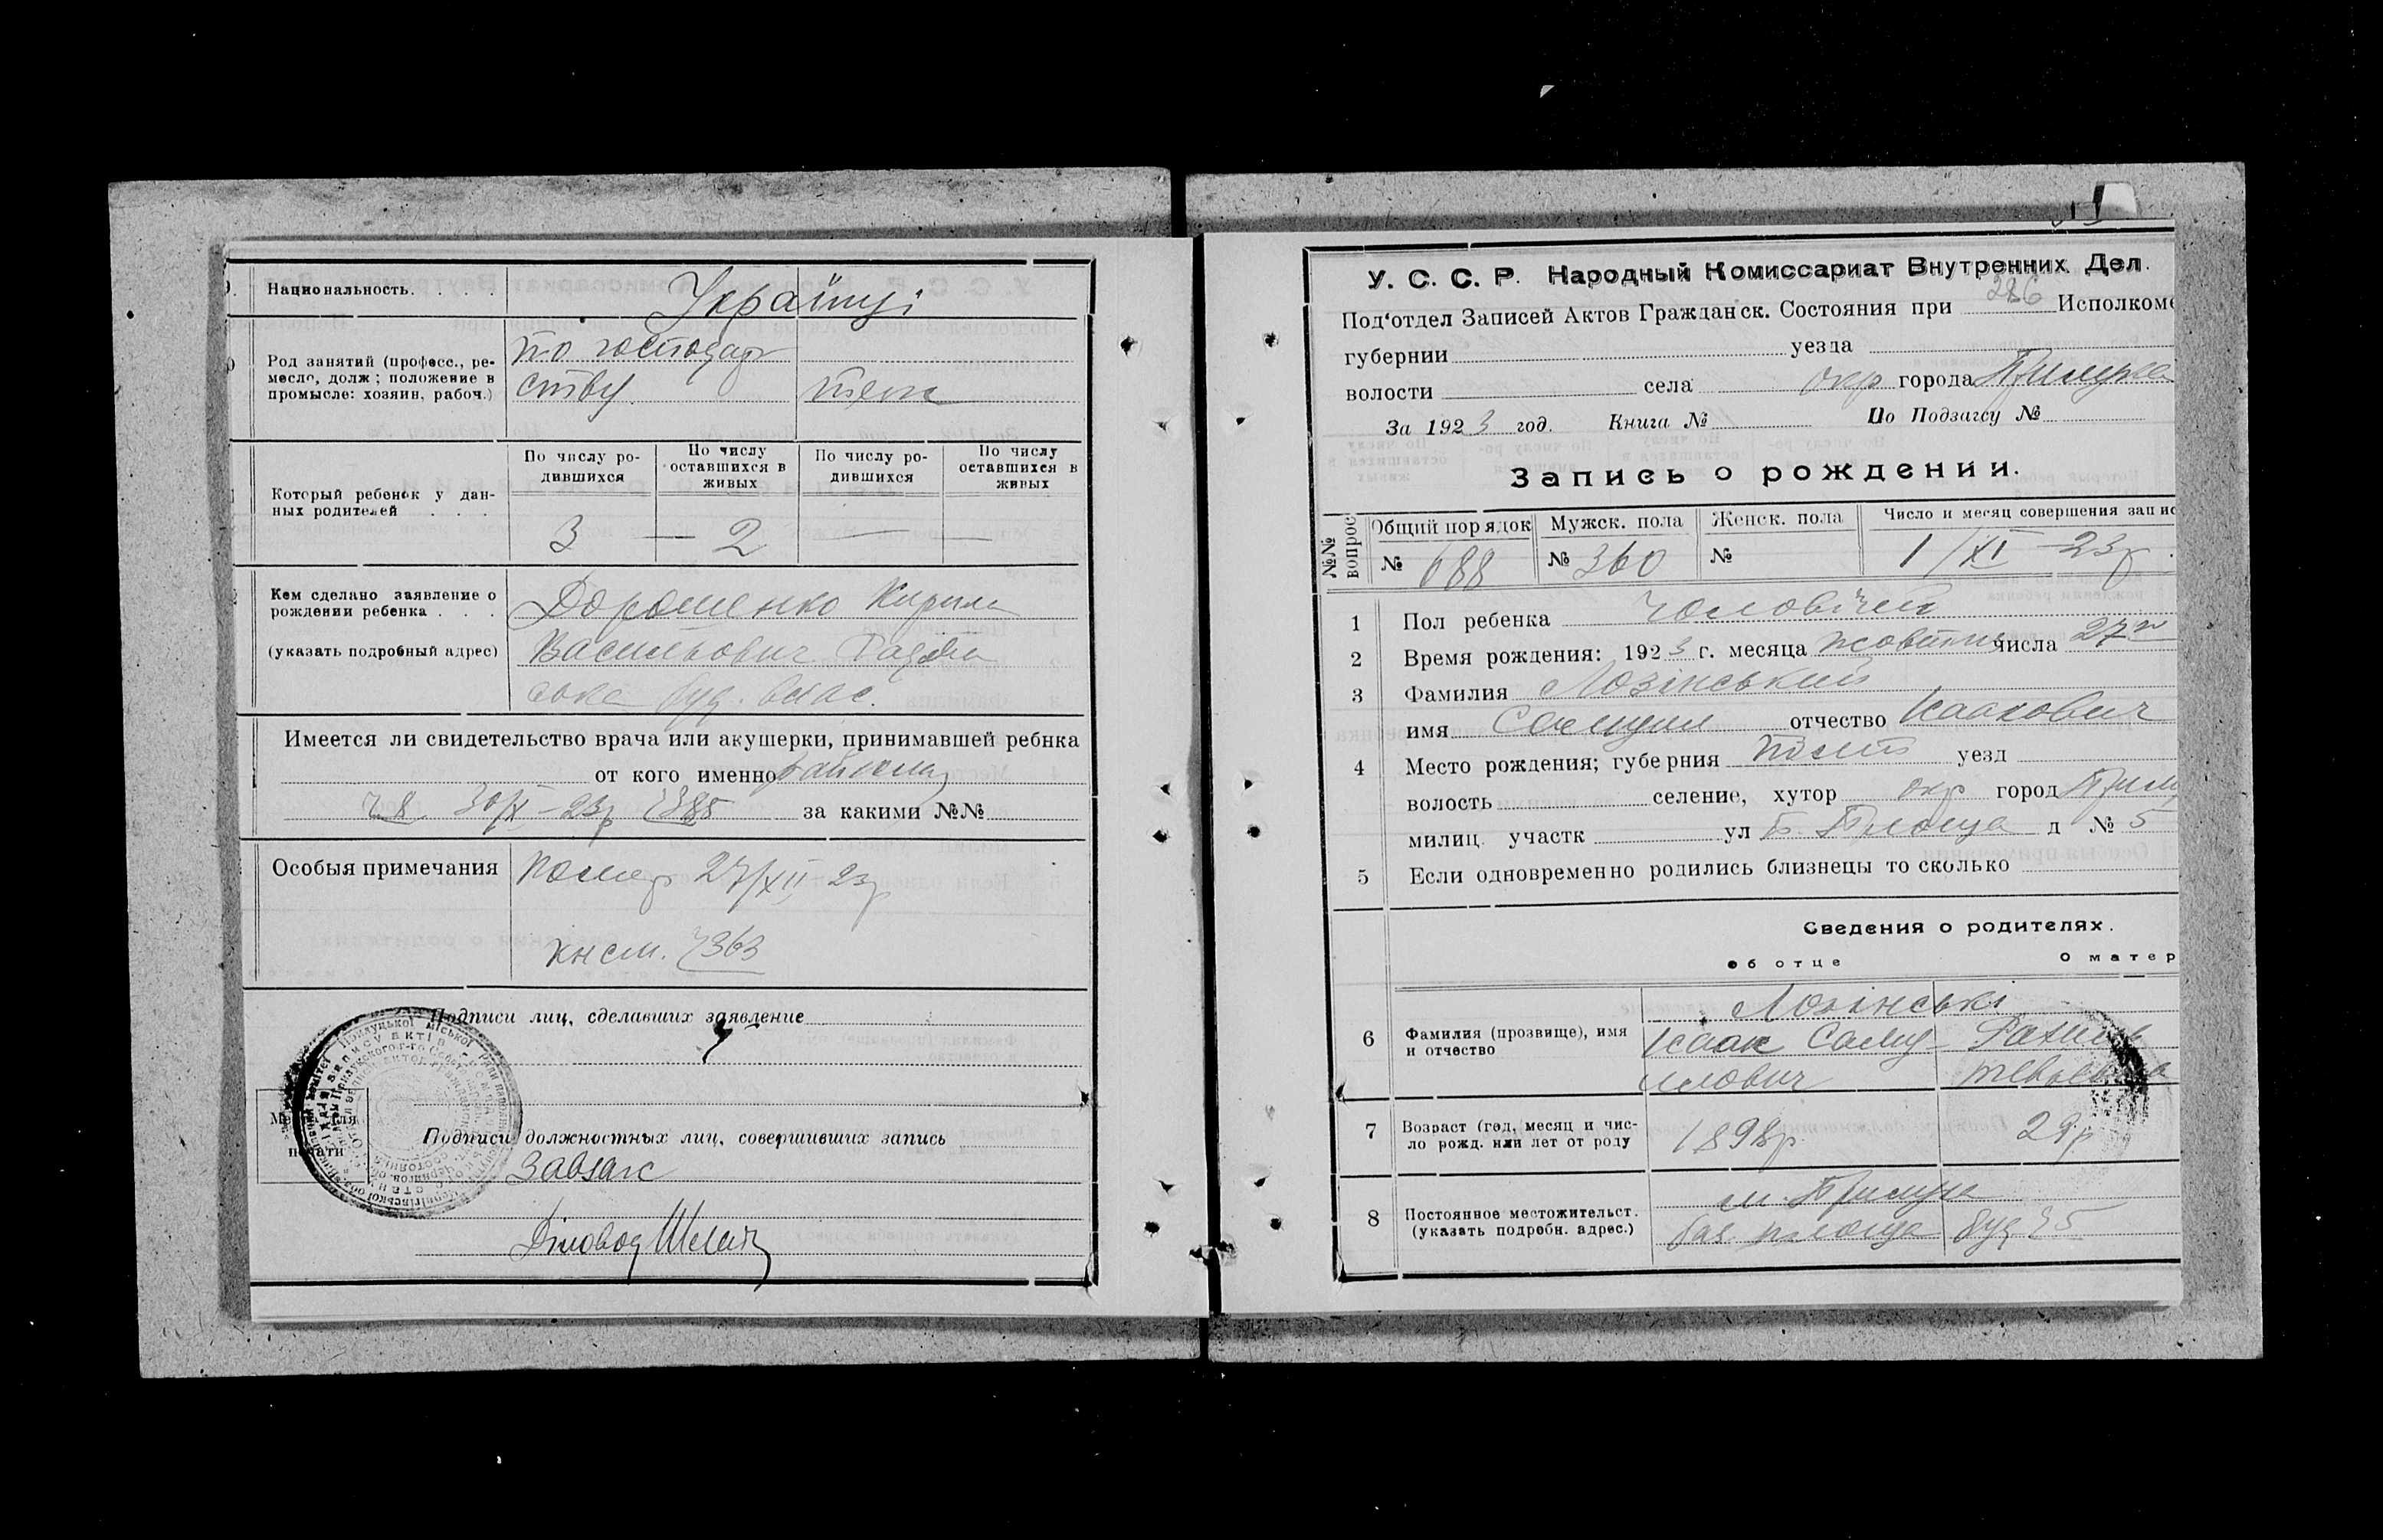 Национальность. . . . .
Українці
Род занятий (професс., ре-
месло, долж; положение в
промысле: хозяин, рабоч.)
по господар
ству.
теж
Который ребенок у дан-
ных родителей . . .
По числу ро-
дившихся
По числу
оставшихся в
живых
По числу ро-
дившихся
По числу
оставшихся в
живых
3 — 2 — —
Кем сделано заявление о
рождении ребенка . . .
(указать подробный адрес)
Дорошенко Кирило
Васильович
буд. влас.
Имеется ли свидетельство врача или акушерки, принимавшей ребнка
от кого именно
30/X – 23р за какими №№
Особыя примечания
Помер 27/XII 23р
363
Подписи лиц, сделавших заявление
Место для
печати
Подписи должностных лиц, совершивших запись
Завзагс
Діловод
У. С. С. Р. Народный Комиссариат Внутренних. Дел.
286
Под‘отдел Записей Актов Гражданск. Состояния при Исполкоме
губернии уезда
волости села окр города Прилука
За 1923 год. Книга № По Подзагсу №
Запись о рождении.
№№ вопрос
Общий порядок
Мужск. пола
Женск. пола
Число и месяц совершения запис
№ 688 № 360 № 1/XI –23р.
1 Пол ребенка чоловічий
2 Время рождения: 1923 г. месяца жовтня числа 27
3 Фамилия Лозінський
имя Самуил отчество Исаакович
4 Место рождения; губерния Полт уезд
волость селение, хутор окр город Прилу
милиц. участк ул Б. Площа д № 5
5 Если одновременно родились близнецы то сколько
Сведения о родителях.
об отце О матер
6 Фамилия (прозвище), имя
и отчество
Лозінські
Исаак Саму-
илович
7 Возраст (год, месяц и чис-
ло рожд. или лет от роду
1898р. 29р
8 Постоянное местожительст.
(указать подробн. адрес.)
м. Прилука
баз. площа буд 5